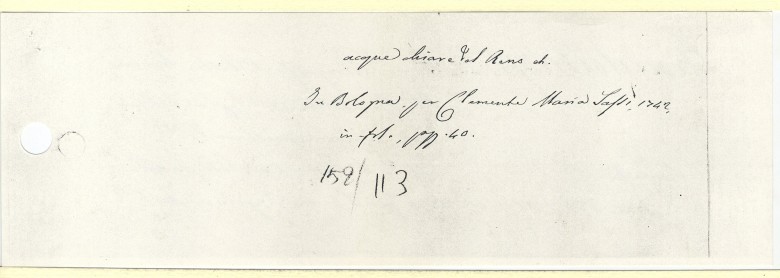 acque chiare del Reno ch.
In Bologna per Clemente Maria Sassi, 1742,
in fol., pp. 40.
158/113